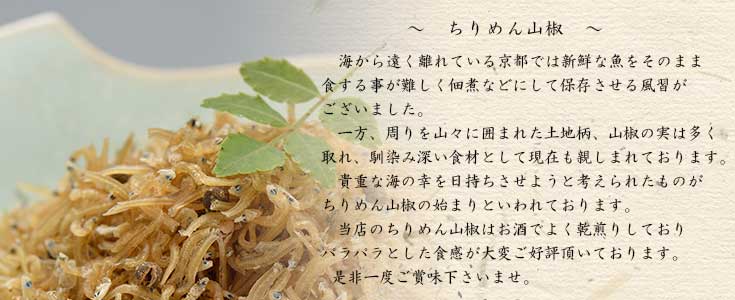 ～　ちりめん山椒　～
海から遠く離れている京都では新鮮な魚をそのまま
食する事が難しく佃煮などにして保存させる風習が
ございました。
一方、周りを山々に囲まれた土地柄、山椒の実は多く
取れ、馴染み深い食材として現在も親しまれております。
貴重な海の幸を日持ちさせようと考えられたものが
ちりめん山椒の始まりといわれております。
当店のちりめん山椒はお酒でよく乾煎りしており
パラパラとした食感が大変ご好評頂いております。
是非一度ご賞味下さいませ。